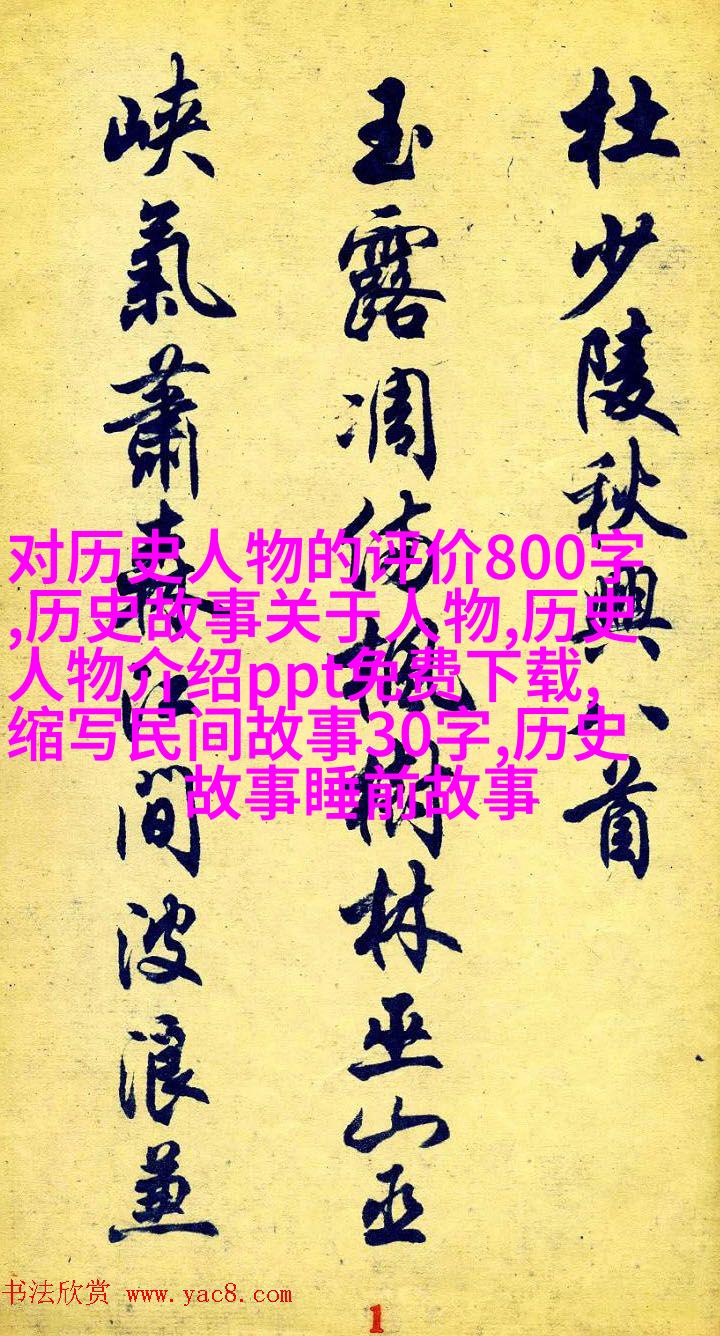 杜少陵秋興八首
玉露凋傷楓樹林巫山巫
峽氣蕭森江間波浪兼
对历史人物的评价800字
,历史故事关于人物,历史
人物介绍ppt免费下载,
缩写民间故事30字,历史
故事睡前故事
书法欣赏 www.yac8.com
1